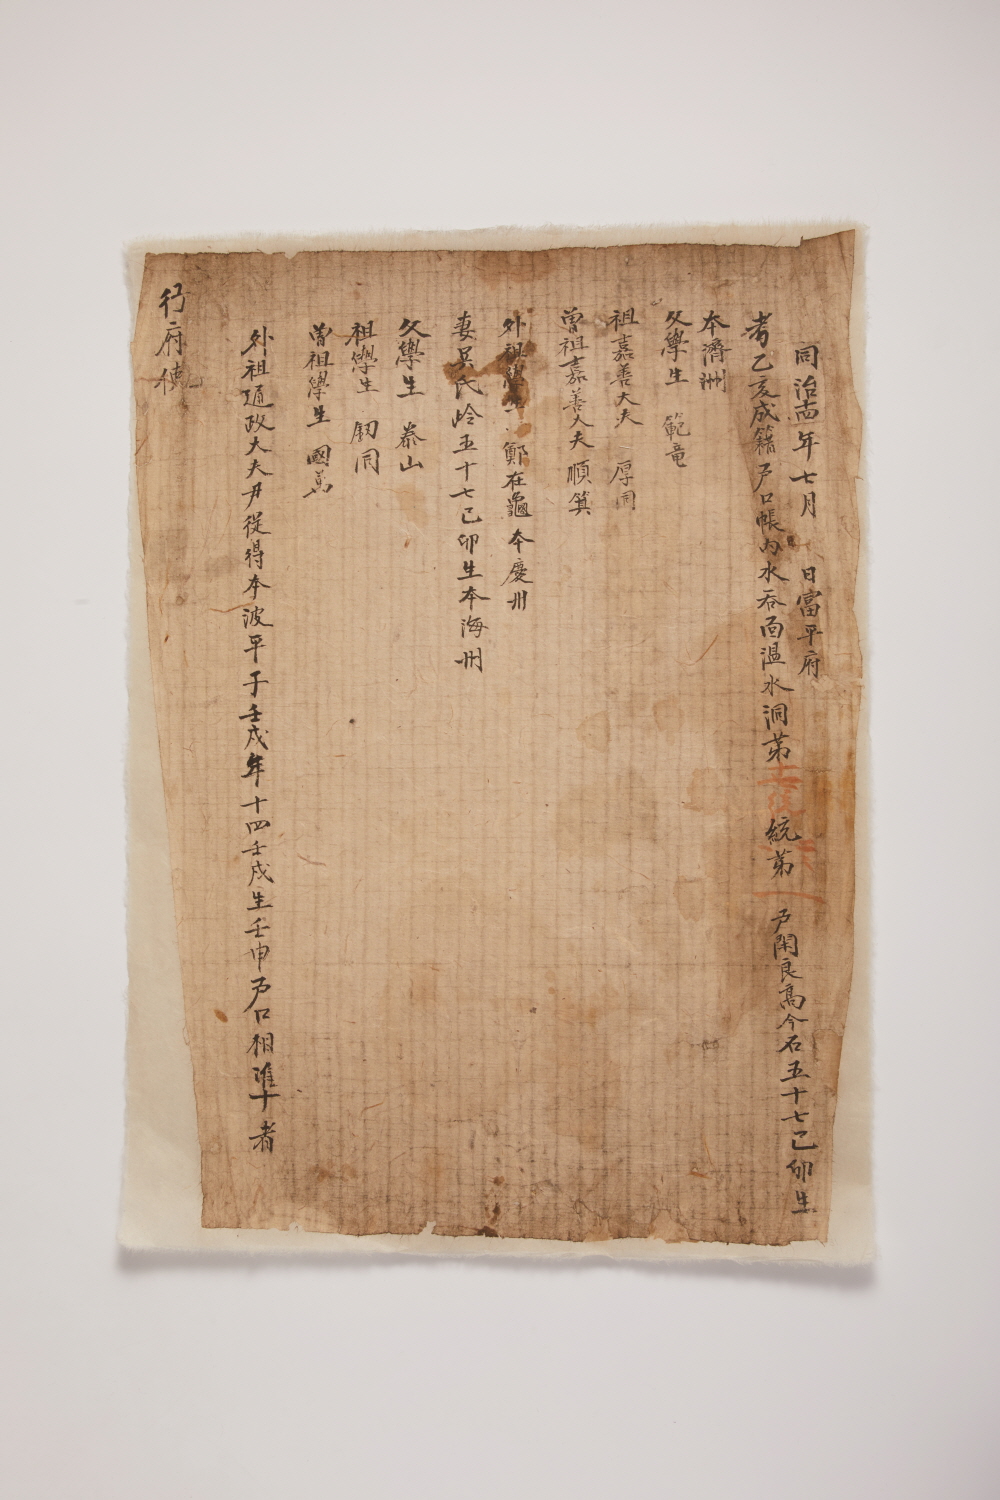 同治十四年七月 日富平府
考乙亥成籍戶口帳內水呑面溫水洞第 統第 戶閑良高今石五十七己卯生
本濟州
父學生 範竜
祖嘉善大夫 厚同
曾祖嘉善大夫 順箕
外祖學生 鄭在龜 本慶州
妻吳氏岭五十七己卯生本海州
父學生 泰山
祖學生 釼同
曾祖學生 國萬
外祖通政大夫尹從得本波平子壬戌年十四壬戌生壬申戶口相準十者
行府使